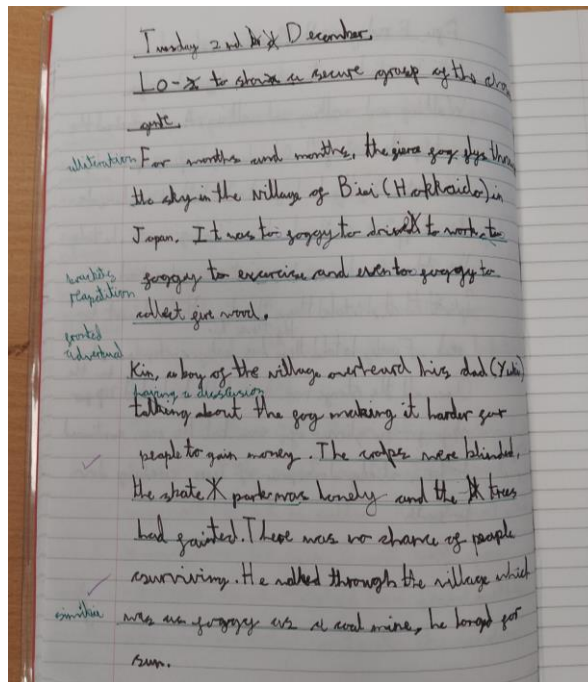 Tuesday 2nd December.
LO-x to show a secure grasp of the
alliteration For months and months, the gierce gog glys
the sky in the village of Biei (Hokkaido) in
Japan. It was to goggy to drive to work, to
brackets
repatition goggy to excercise and even to goggy to
collect gire wood.
gronted
adverbial
Kin, a boy of the village overheard his dad (Yuki)
having a dusslesion
talking about the gog making it harder gor
people to gain money. The were blinded,
the skate park was lonely and the trees
had gainted. There was no chance of people
surviving. He walked through the village which
similie was as goggy as a coal mine, he longed for
sun.